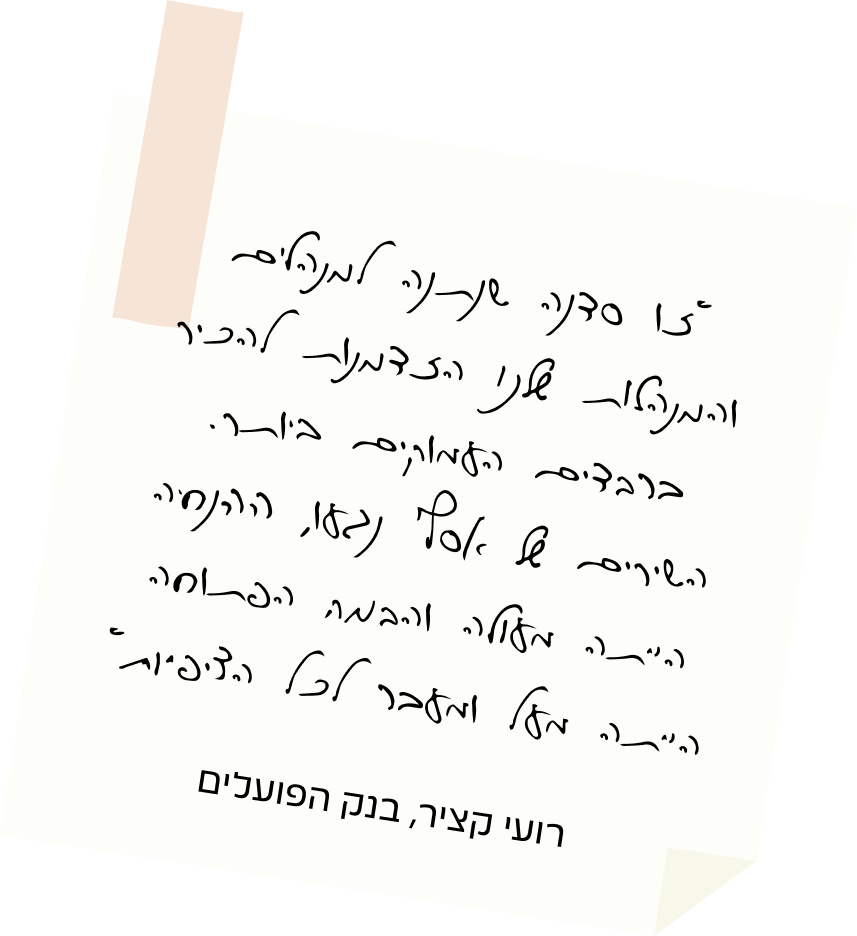 "זו סדנה שנתנה למנהלים
והמנהלות שלנו הזדמנות להכיר
ברבדים העמוקים ביותר.
השירים של אסף נגעו, ההנחיה
הייתה מעולה והבמה הפתוחה
הייתה מעל ומעבר לכל הציפיות"
רועי קציר, בנק הפועלים